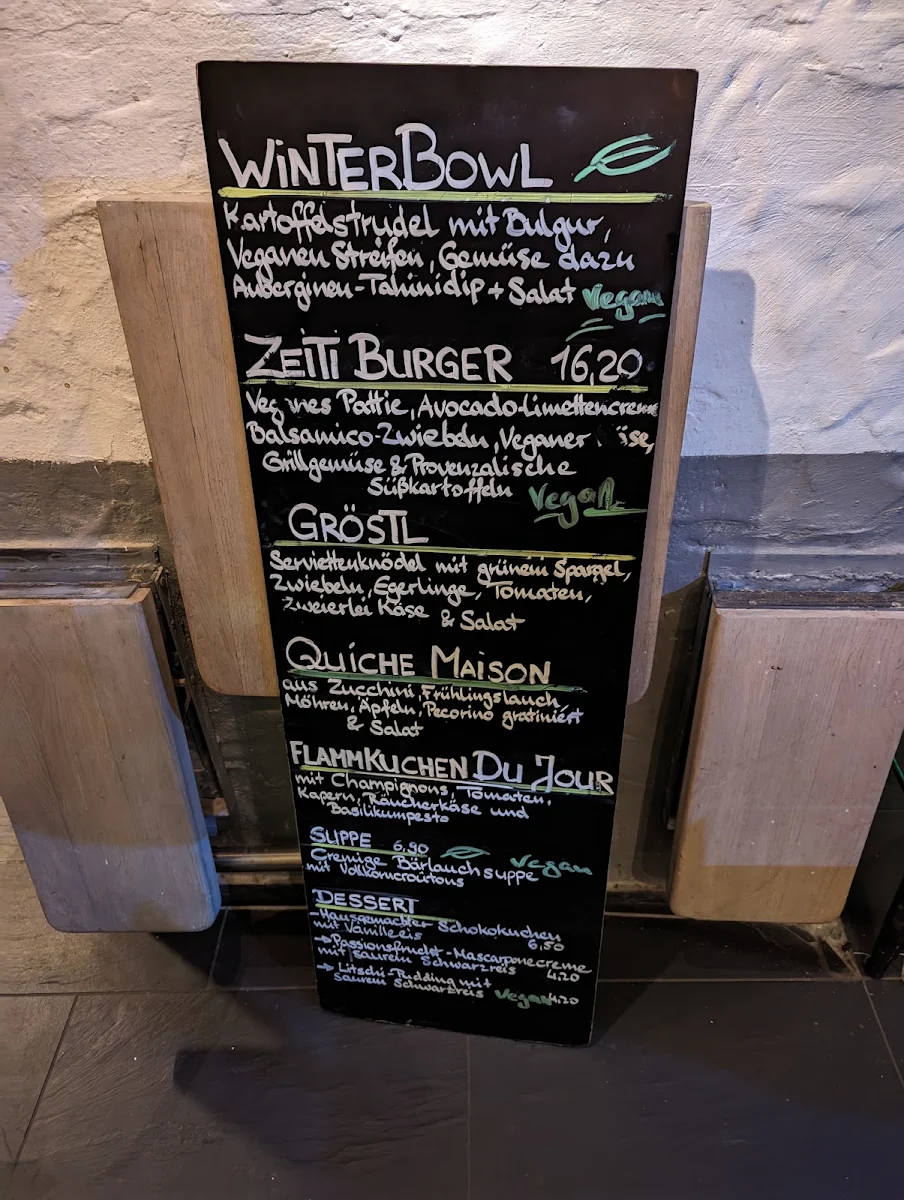 WINTERBOWL
Kartoffelstrudel mit Bulgur,
Veganen Streifen, Gemüse dazu
Auberginen-Tahinidip + Salat vegan
ZEITI BURGER 16,20
Pattie, Avocado-Limettencreme
Balsamico-Zwiebeln, Veganer
Grillgemüse & Provenzalische
Süßkartoffeln Vegan
GRÖSTL
Serviettenknödel mit grünem Spargel,
Zwiebeln, Egerlinge, Tomaten,
Zweierlei Käse & Salat
QUICHE MAISON
aus Zucchini, Frühlingslauch,
Möhren, Äpfeln, Pecorino gratiniert
& Salat
FLAMMKUCHEN DU JOUR
mit Champignons, Tomaten,
Kapern, Räucherkäse und
Basilikumpesto
SUPPE 6,90
Cremige Bärlauchsuppe vegan
mit Vollkorncroutons
DESSERT
- Hausgemachter Schokokuchen
mit Vanilleeis 6,50
→ Passionsfrucht-Mascarponecreme
mit saurem Schwarzreis 4,20
→ Litschi-Pudding mit
saurem Schwarzreis Vegan 4,20